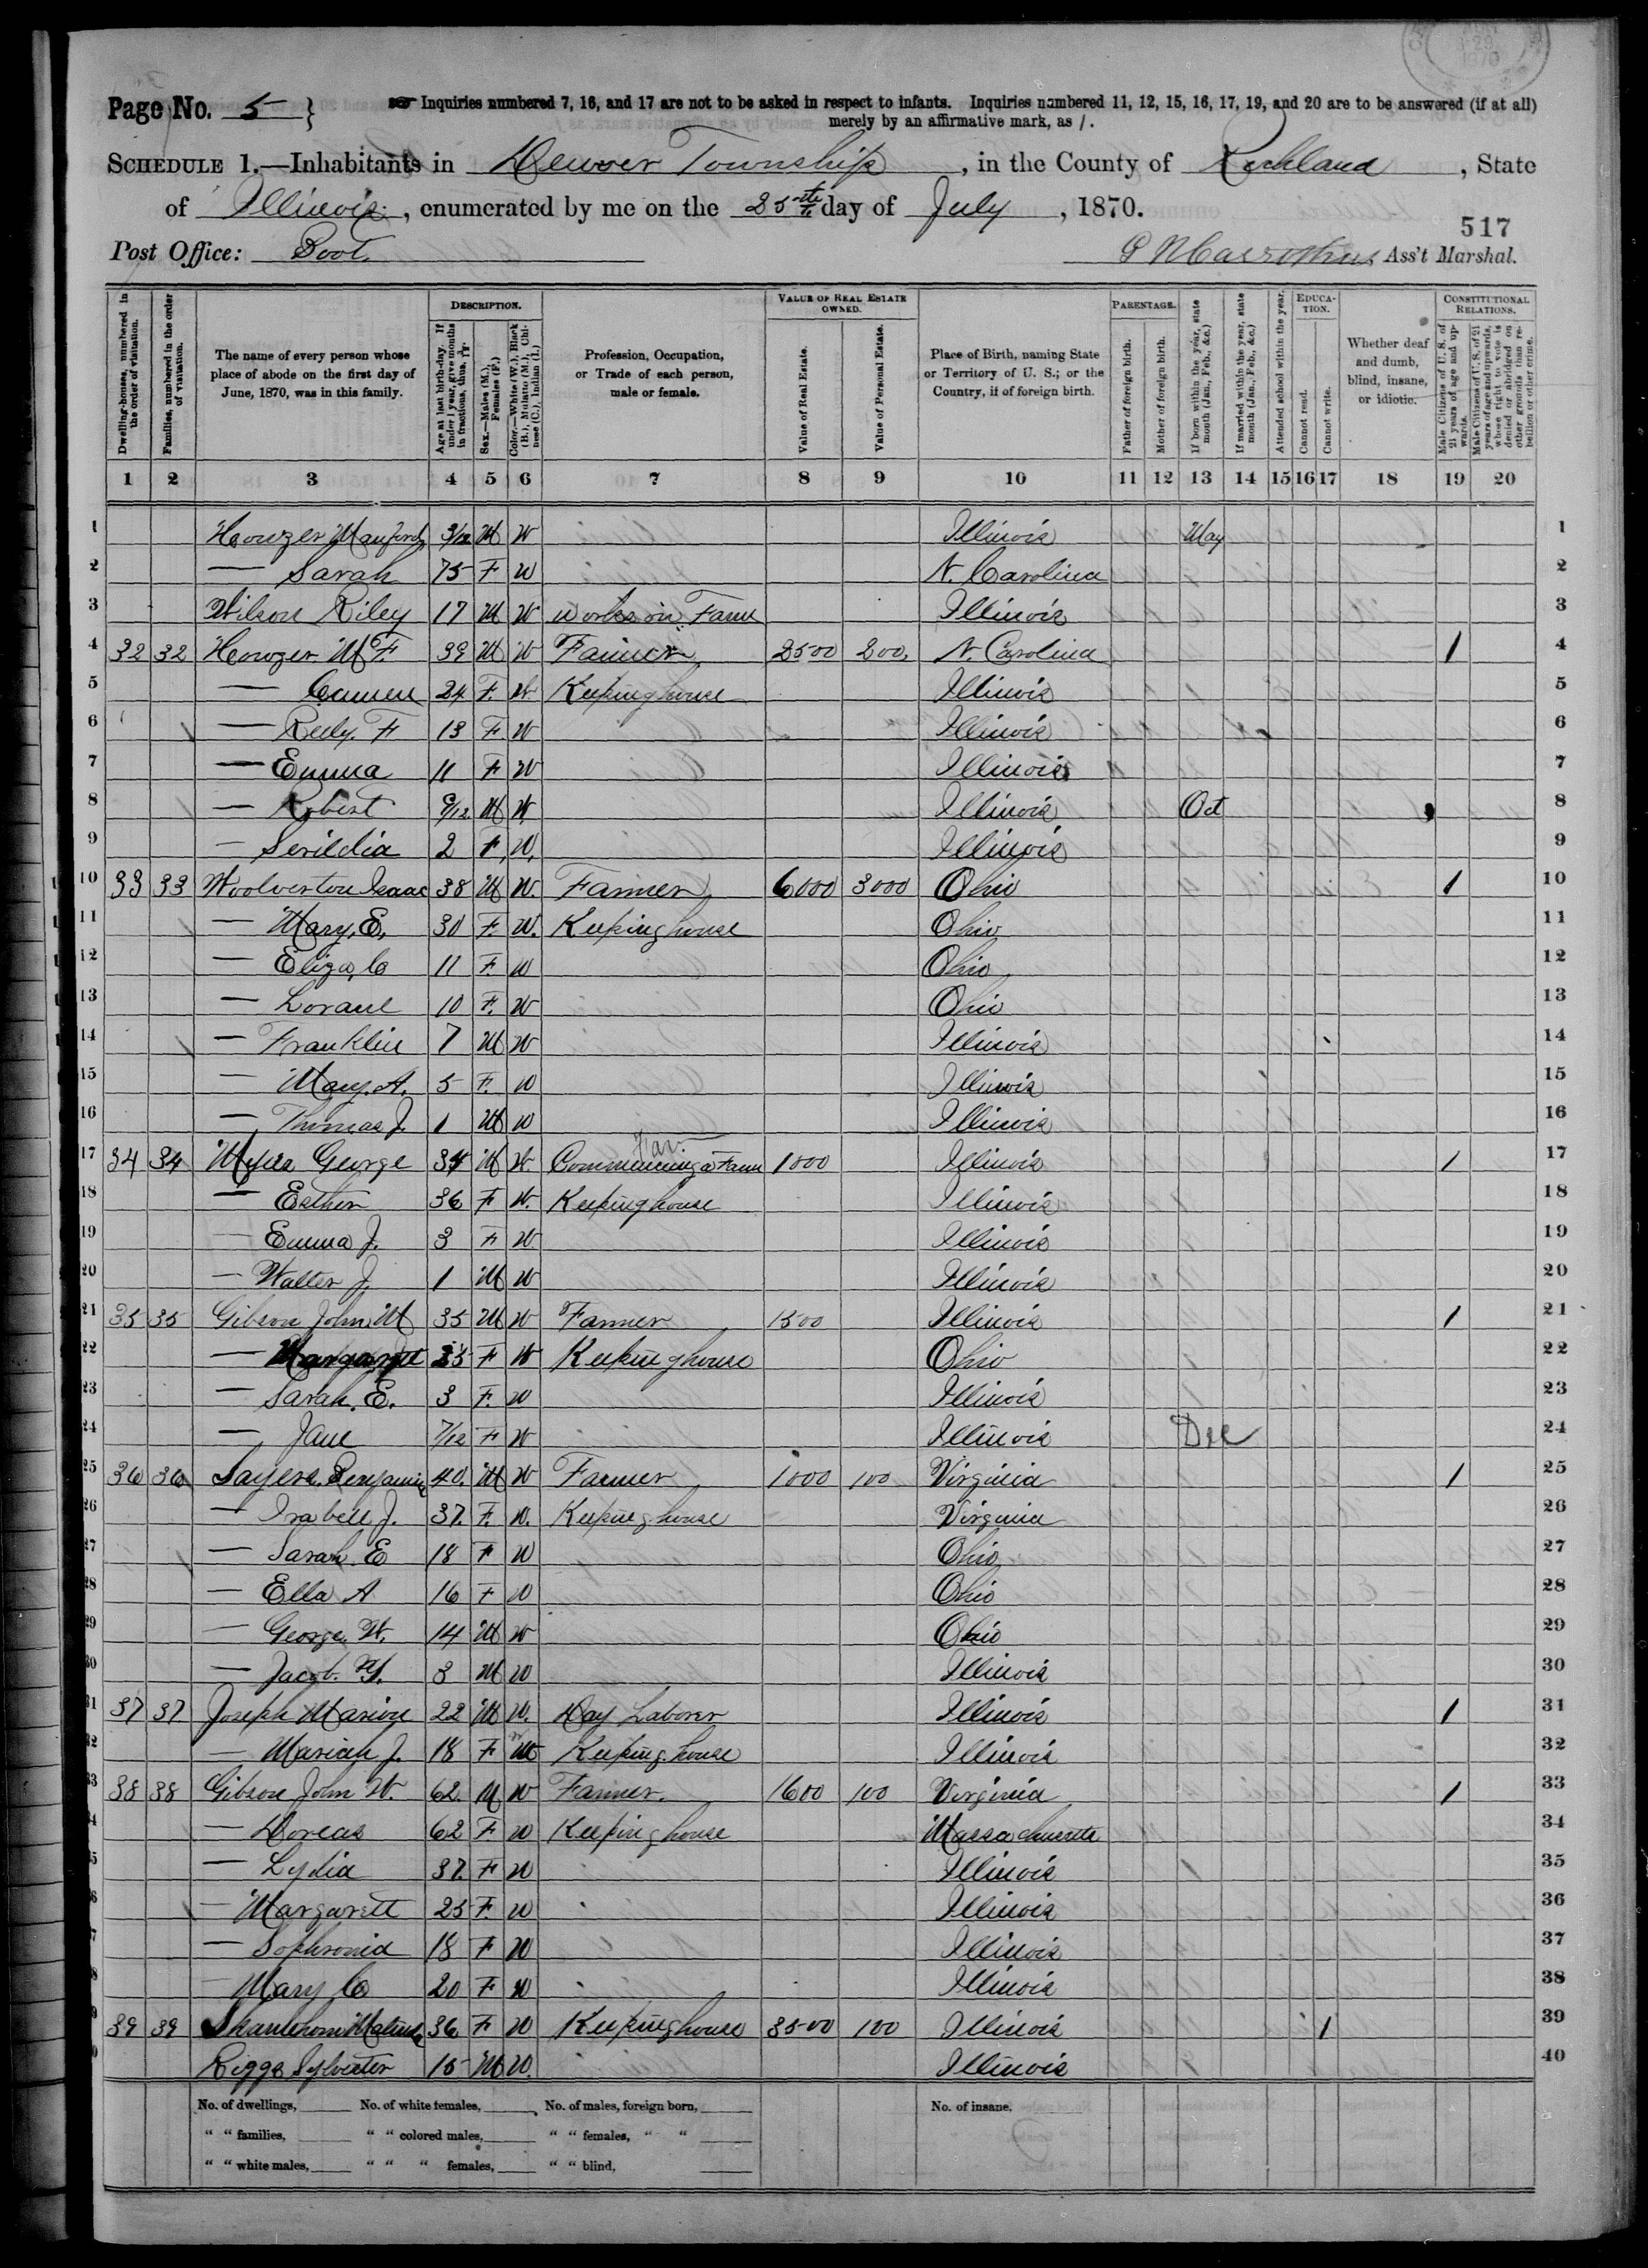 Page No. 5 } Inquiries numbered 7, 16, and 17 are not to be asked in respect to infants. Inquiries numbered 11, 12, 15, 16, 17, 19, and 20 are to be answered (if at all)
merely by an affirmative mark, as /.
SCHEDULE 1.—Inhabitants in Denver Township, in the County of Richland, State
of Illinois, enumerated by me on the 25th day of July, 1870.
517
Post Office: Ass't Marshal.
DESCRIPTION. VALUE OF REAL ESTATE OWNED. PARENTAGE. EDUCATION. CONSTITUTIONAL RELATIONS.
Dwelling-houses, numbered in the order of visitation.
Families, numbered in the order of visitation.
The name of every person whose place of abode on the first day of June, 1870, was in this family.
Age at last birth-day. If under 1 year, give months in fractions, thus,
Sex.—Males (M.), Females (F.)
Color.—White (W.), Black (B.), Mulatto (M.), Chinese (C.), Indian (I.)
Profession, Occupation, or Trade of each person, male or female.
Value of Real Estate.
Value of Personal Estate.
Place of Birth, naming State or Territory of U. S.; or the Country, if of foreign birth.
Father of foreign birth.
Mother of foreign birth.
If born within the year, state month (Jan., Feb., &c.)
If married within the year, state month (Jan., Feb., &c.)
Attended school within the year.
Cannot read.
Cannot write.
Whether deaf and dumb, blind, insane, or idiotic.
Male Citizens of U. S. of 21 years of age and upwards.
Male Citizens of U. S. of 21 years of age and upwards, whose right to vote is denied or abridged on other grounds than rebellion or other crime.
1 2 3 4 5 6 7 8 9 10 11 12 13 14 15 16 17 18 19 20
1 Howzer Manford 3/12 M W Illinois May 1
2 — Sarah 75 F W N. Carolina 2
3 Wilson Riley 17 M W works on Farm Illinois 3
4 32 32 Howzer M F. 39 M W Farmer 2500 200 N. Carolina 1 4
5 — 24 F. W Keeping house Illinois 5
6 — F 13 F. W Illinois 6
7 — Emma 11 F W Illinois 7
8 — Robert 9/12 M W. Illinois Oct 8
9 — Serildia 2 F, W, Illinois 9
10 33 33 Woolverton Isaac 38 M W. Farmer 6000 3000 Ohio 1 10
11 — Mary, E, 30 F. W. Keeping house Ohio 11
12 — Eliza, C 11 F. W Ohio 12
13 — 10 F. W Ohio 13
14 — Franklin 7 M W Illinois 14
15 — Mary. A. 5 F. W Illinois 15
16 — Thomas J. 1 M W Illinois 16
17 34 34 Myers George 34 M W. Commencing a Farm 1000 Illinois 1 17
18 — Esther 36 F W. Keeping house Illinois 18
19 — Emma J. 3 F W. Illinois 19
20 — Walter J, 1 M W Illinois 20
21 35 35 Gibson John M 35 M W Farmer 1500 Illinois 1 21
22 — Margarett 25 F W Keeping house Ohio 22
23 — Sarah. E. 3 F. W Illinois 23
24 — Jane 7/12 F W Illinois Dec 24
25 36 36 Sayers Benjamin 40. M W Farmer 1000 100 Virginia 1 25
26 — Isabell J. 37. F. W. Keeping house Virginia 26
27 — Sarah. E 18 F W Ohio 27
28 — Ella A 16 F W Ohio 28
29 — George. W. 14 M W Ohio 29
30 — Jacob. 3 M W Illinois 30
31 37 37 Joseph Marion 22 M W. Day Laborer Illinois 1 31
32 — Mariah J. 18 F Keeping house Illinois 32
33 38 38 Gibson John W. 62. M W Farmer. 1600 100 Virginia 1 33
34 — Dorcas 62 F W Keeping house Massachusetts 34
35 — Lydia 37. F W Illinois 35
36 — Margarett 25 F. W Illinois 36
37 — Sophronia 18 F W Illinois 37
38 — Mary C 20 F W Illinois 38
39 39 39 36 F W Keeping house 3500 100 Illinois 1 39
Riggs Sylvester 15 M W. Illinois 40
No. of dwellings, No. of white females, No. of males, foreign born, No. of insane,
" " families, " " colored males, " " females, " "
" " white males, " " " females, " " blind,